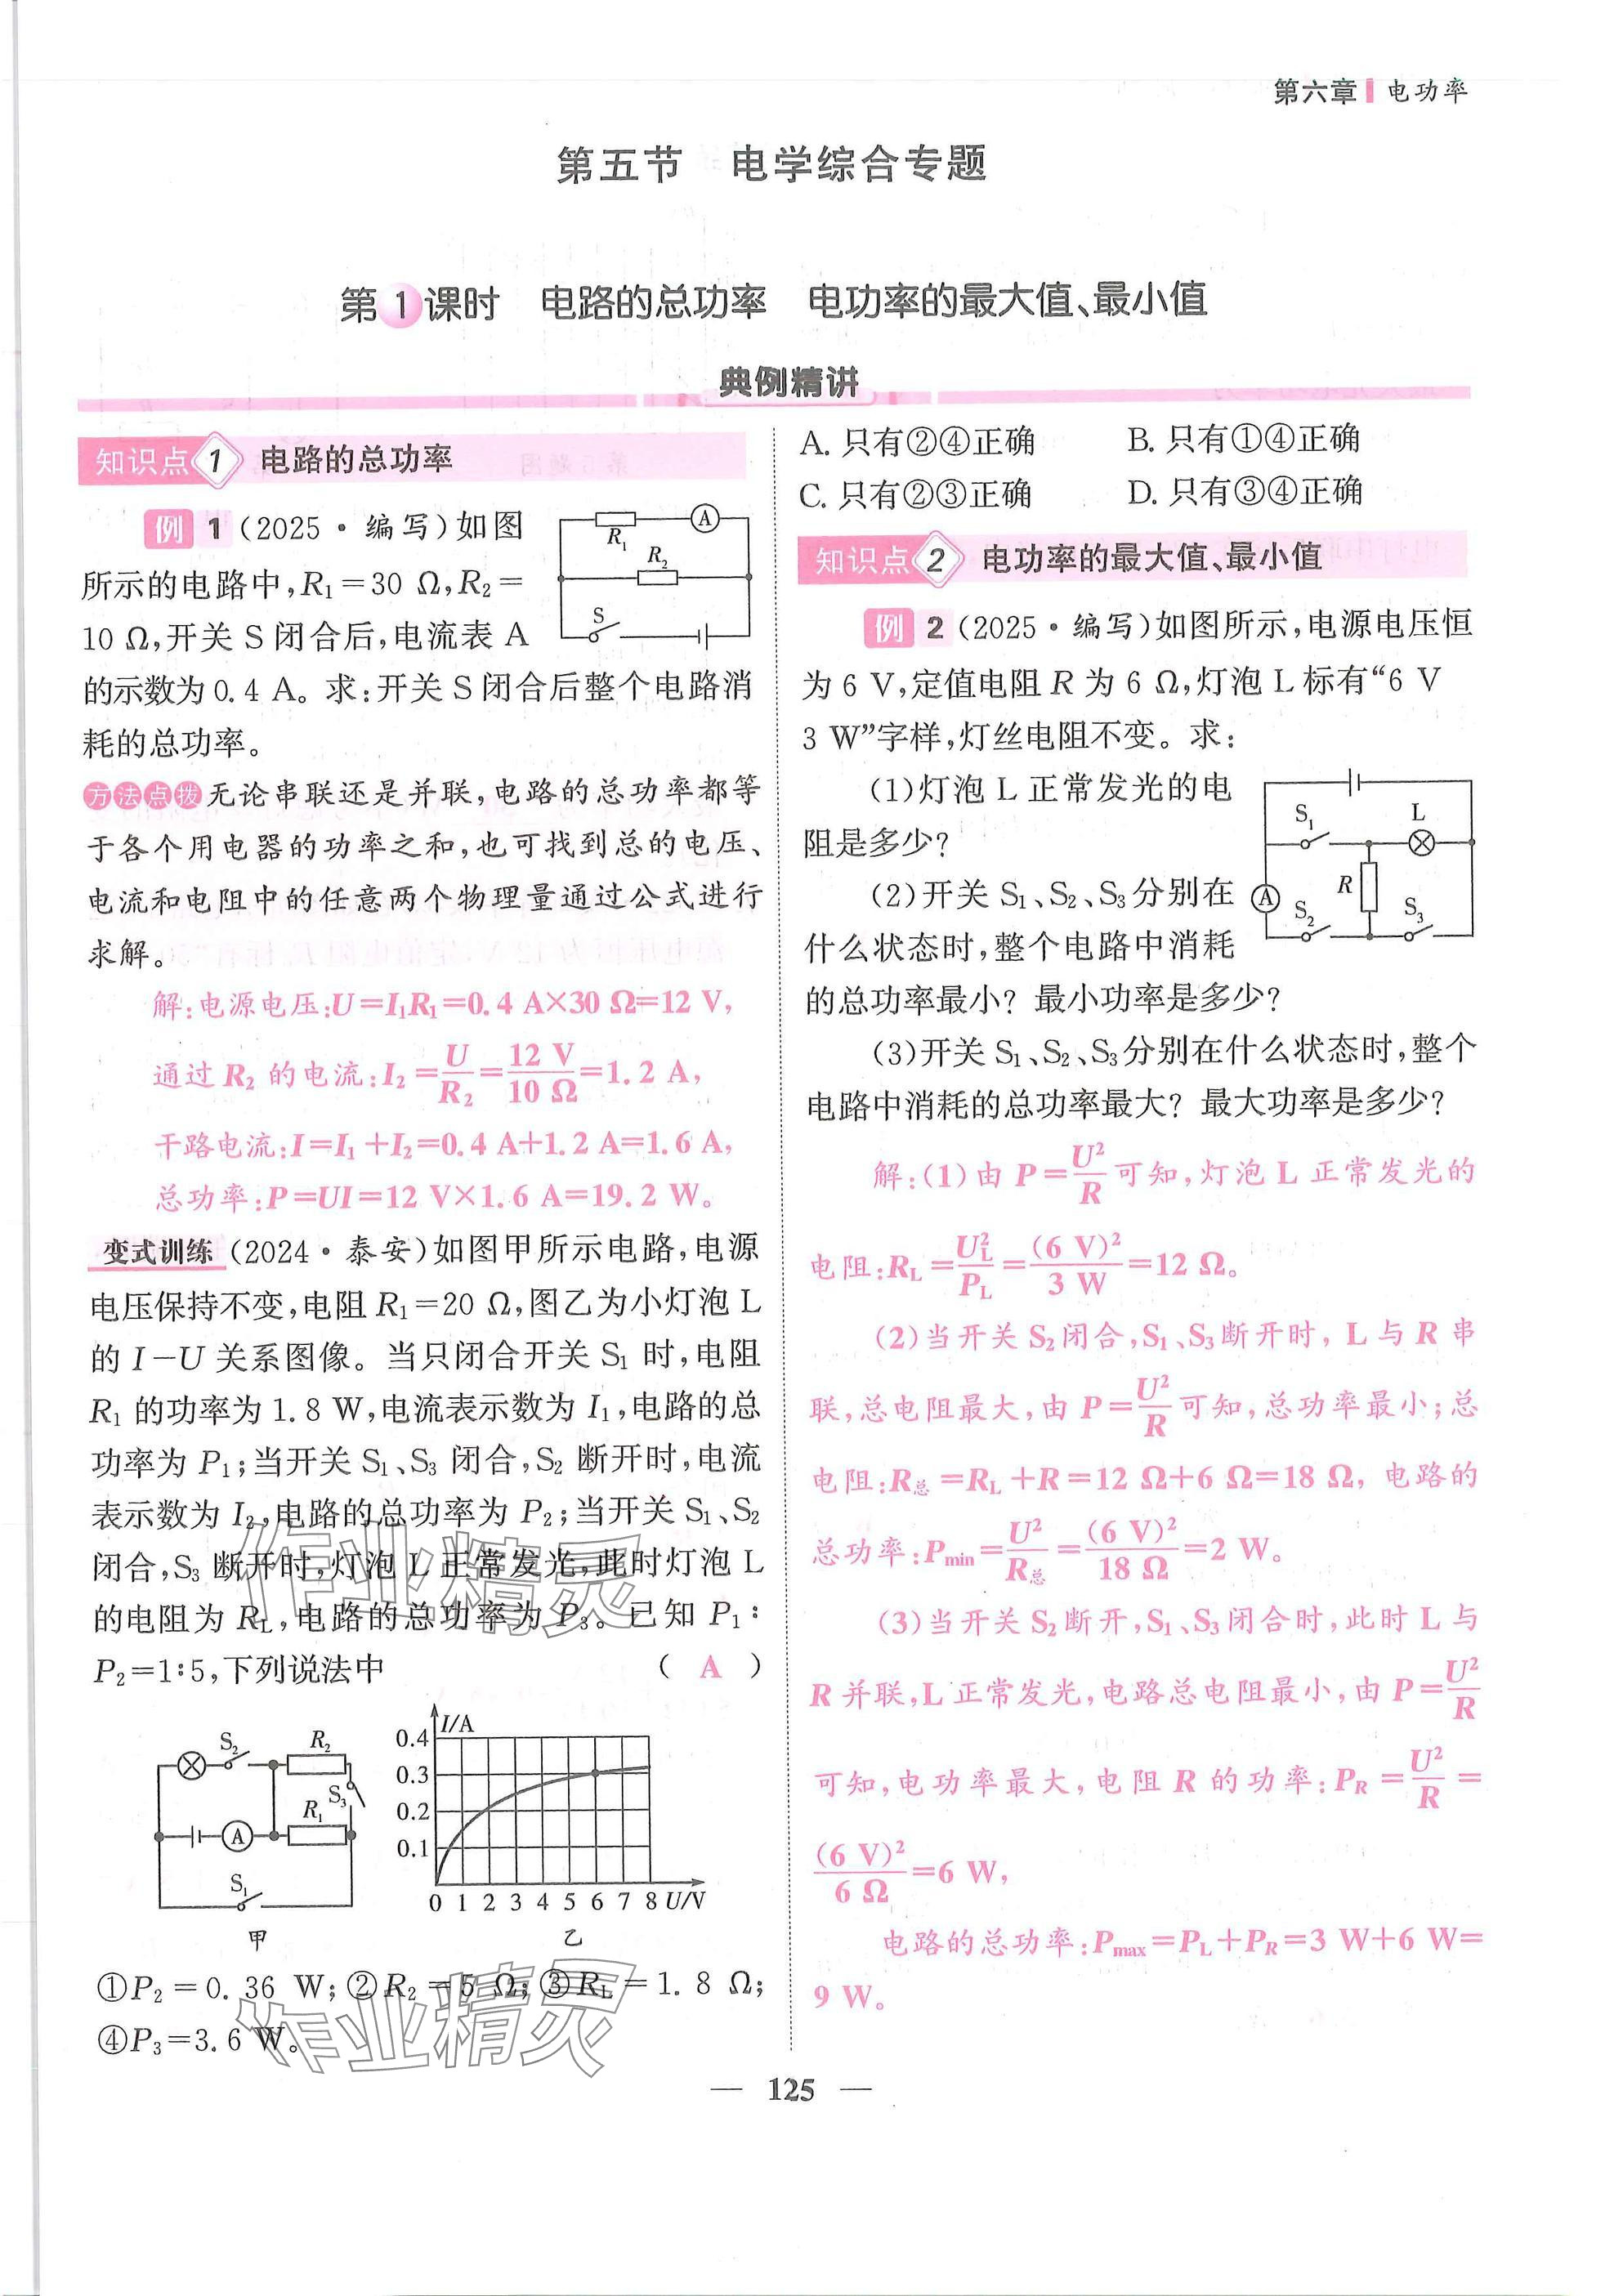 第六章 电功率
第五节 电学综合专题
第1课时 电路的总功率 电功率的最大值、最小值
典例精讲
知识点1 电路的总功率
例1(2025·编写)如图
所示的电路中,R₁=30 Ω,R₂=
10 Ω,开关 S 闭合后,电流表 A
的示数为 0.4 A。求:开关 S 闭合后整个电路消
耗的总功率。
R₁
A
R₂
S
方法点拨 无论串联还是并联,电路的总功率都等
于各个用电器的功率之和,也可找到总的电压、
电流和电阻中的任意两个物理量通过公式进行
求解。
解:电源电压:U=I₁R₁=0.4 A×30 Ω=12 V,
通过 R₂ 的电流:I₂=U/R₂=12 V/10 Ω=1.2 A,
干路电流:I=I₁+I₂=0.4 A+1.2 A=1.6 A,
总功率:P=UI=12 V×1.6 A=19.2 W。
变式训练 (2024·泰安)如图甲所示电路,电源
电压保持不变,电阻 R₁=20 Ω,图乙为小灯泡 L
的 I-U 关系图像。当只闭合开关 S₁ 时,电阻
R₁ 的功率为 1.8 W,电流表示数为 I₁,电路的总
功率为 P₁;当开关 S₁、S₃ 闭合,S₂ 断开时,电流
表示数为 I₂,电路的总功率为 P₂;当开关 S₁、S₂
闭合,S₃ 断开时,灯泡 L 正常发光,此时灯泡 L
的电阻为 R_L,电路的总功率为 P₃。已知 P₁:
P₂=1:5,下列说法中 ( A )
S₂
R₂
S₃
R₁
A
S₁
甲
I/A
0.4
0.3
0.2
0.1
0 1 2 3 4 5 6 7 8 U/V
乙
①P₂=0.36 W;②R₂=5 Ω;③R_L=1.8 Ω;
④P₃=3.6 W。
作业精灵
作业精灵
A. 只有②④正确 B. 只有①④正确
C. 只有②③正确 D. 只有③④正确
知识点2 电功率的最大值、最小值
例2(2025·编写)如图所示,电源电压恒
为 6 V,定值电阻 R 为 6 Ω,灯泡 L 标有“6 V
3 W”字样,灯丝电阻不变。求:
(1)灯泡 L 正常发光的电
阻是多少?
(2)开关 S₁、S₂、S₃分别在
什么状态时,整个电路中消耗
的总功率最小? 最小功率是多少?
S₁
L
R
A
S₂
S₃
(3)开关 S₁、S₂、S₃分别在什么状态时,整个
电路中消耗的总功率最大? 最大功率是多少?
解:(1)由 P=U²/R可知,灯泡 L 正常发光的
电阻:R_L=U_L²/P_L=(6 V)²/3 W=12 Ω。
(2)当开关 S₂闭合,S₁、S₃断开时, L 与 R 串
联,总电阻最大,由 P=U²/R可知,总功率最小;总
电阻:R总=R_L+R=12 Ω+6 Ω=18 Ω, 电路的
总功率:P_min=U²/R总=(6 V)²/18 Ω=2 W。
(3)当开关 S₂断开,S₁、S₃闭合时,此时 L 与
R 并联,L 正常发光,电路总电阻最小,由 P=U²/R
可知,电功率最大,电阻 R 的功率:P_R=U²/R=
(6 V)²/6 Ω=6 W,
电路的总功率:P_max=P_L+P_R=3 W+6 W=
9 W。
— 125 —